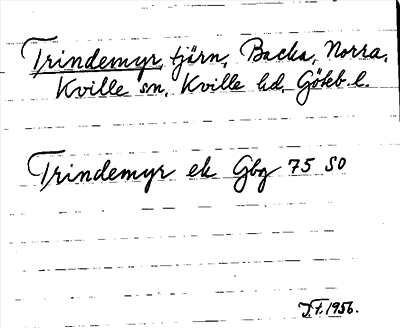 Trindemyr, tjärn, Backa, Norra,
Kville sn, Kville hd, Göteb. l.
Trindemyr ek Gbg 75 SO
1956.